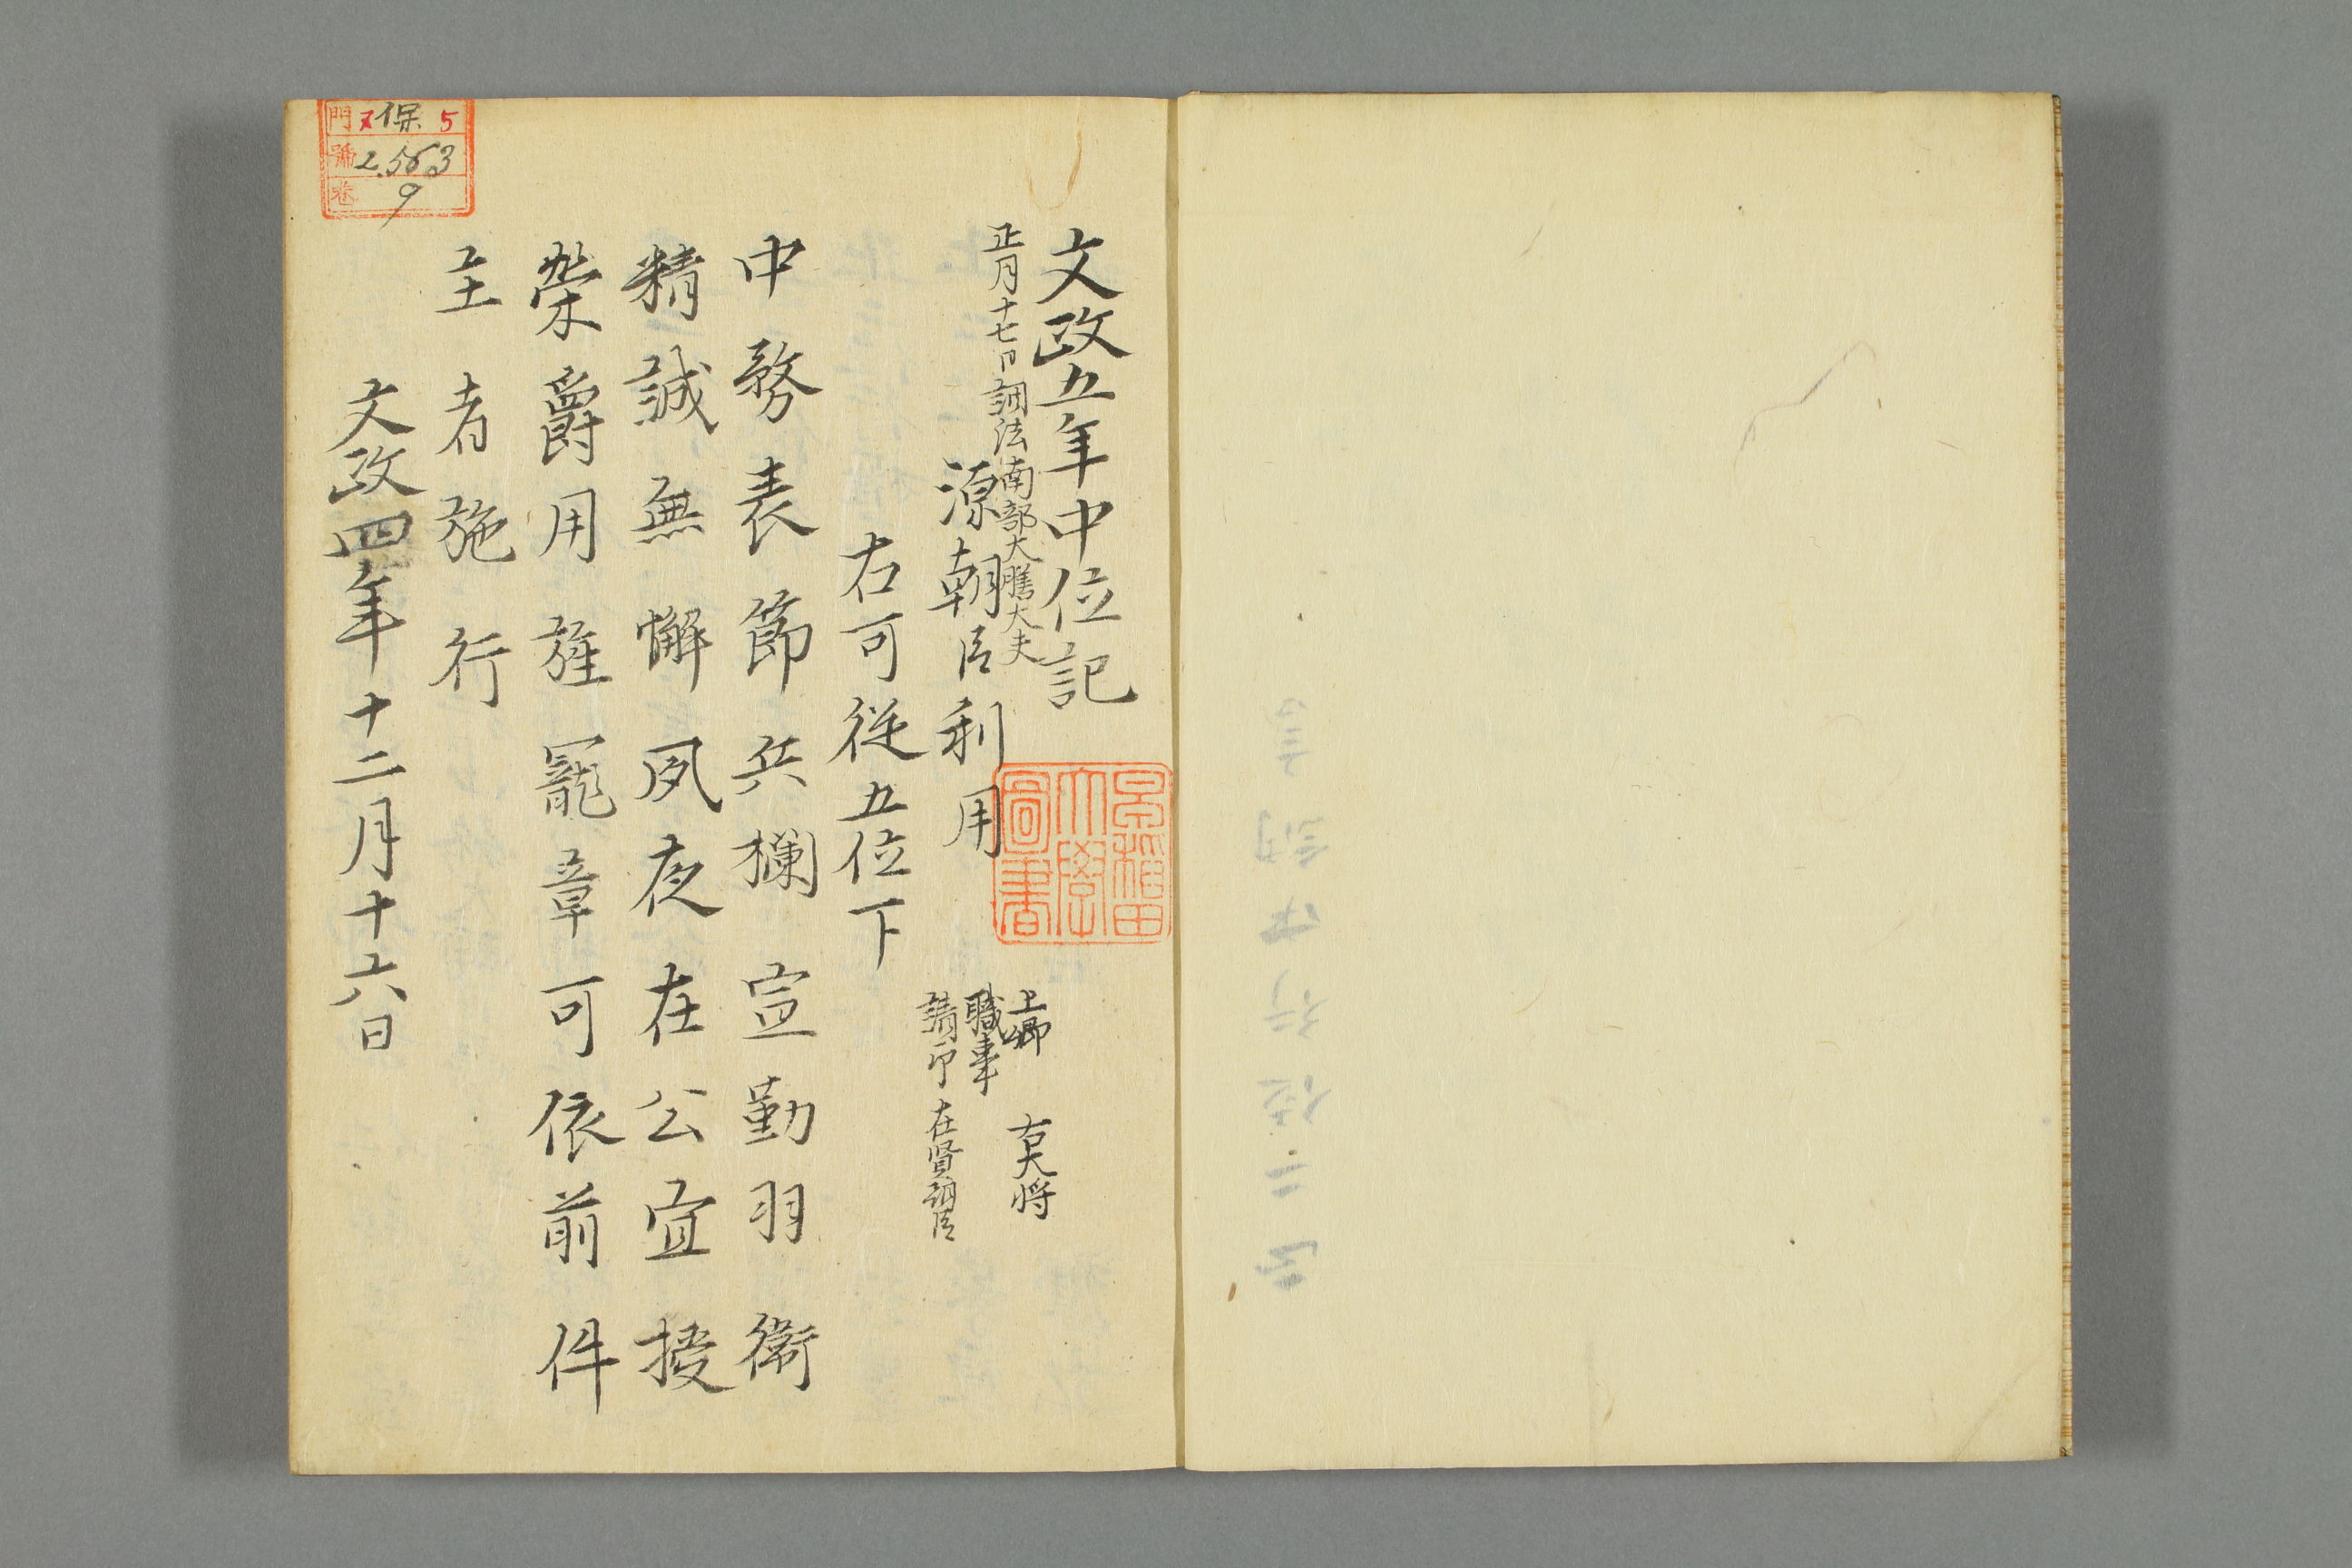 文政五年中位記
正月十七日調法南部大膳大夫
源朝臣利用
上卿 右大将
職事
請印 在賢調臣
右可従五位下
中務表節兵欄宣勤羽衛
精誠無懈夙夜在公宜授
榮爵用旌寵章可依前件
主者施行
文政四年十二月十六日
早稲田大學圖書
門 又保 5
號 2,563
卷 9